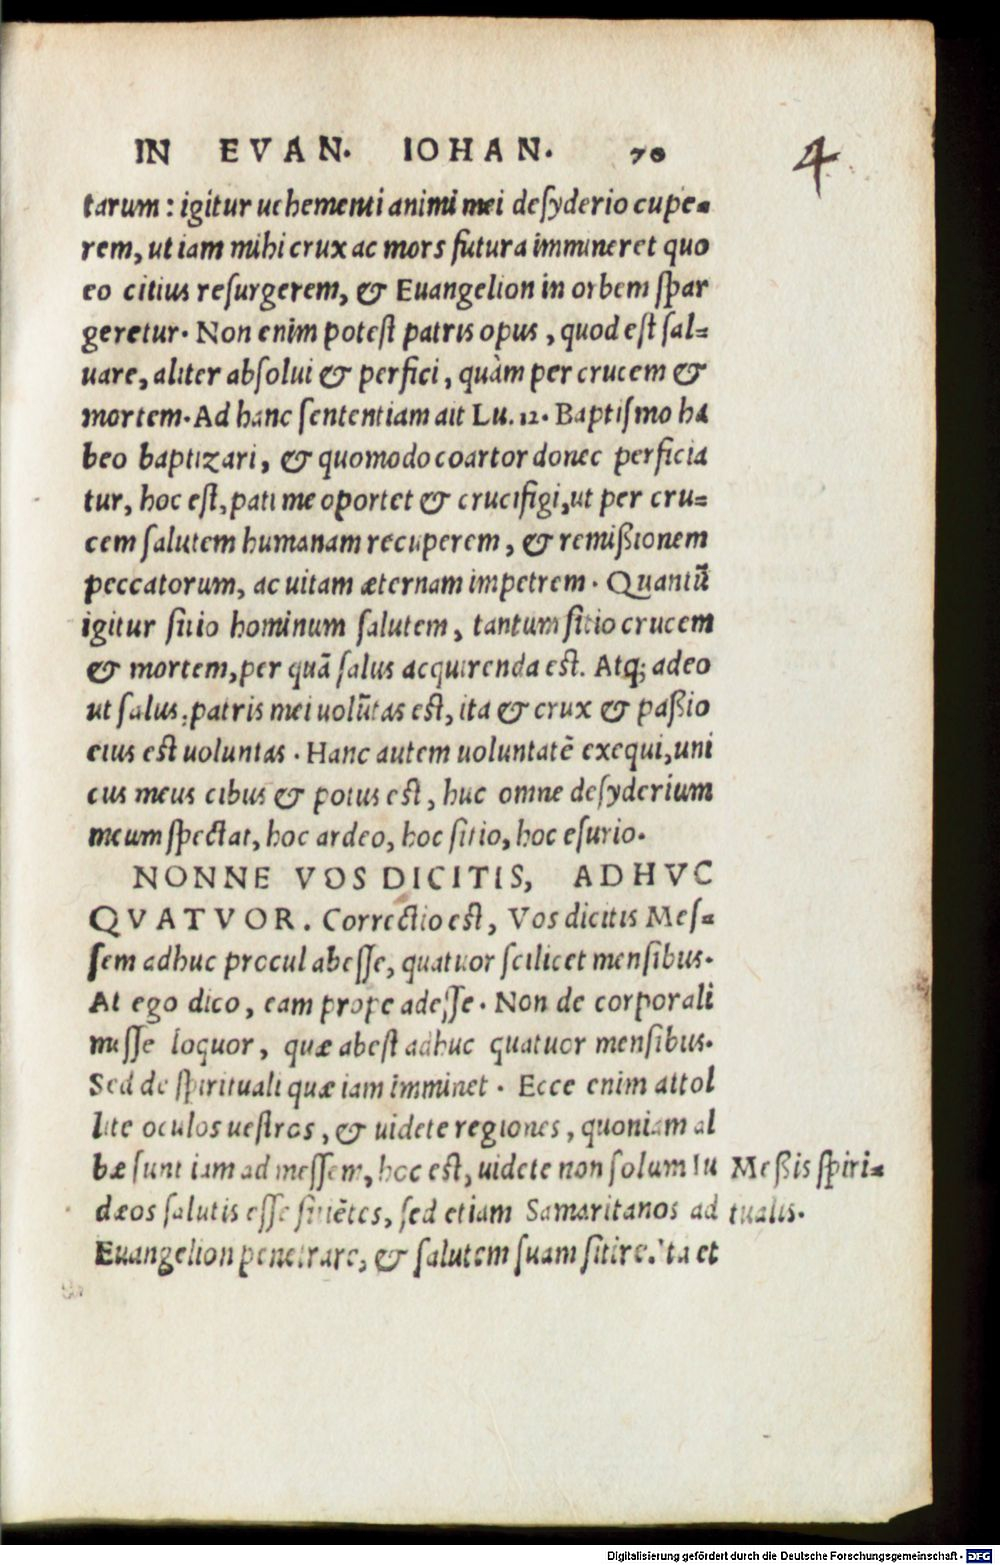 IN EVAN. IOHAN. 70
4
tarum: igitur uehementi animi mei desyderio cupe-
rem, ut iam mihi crux ac mors futura immineret quo
eo citius resurgerem, & Euangelion in orbem spar
geretur. Non enim potest patris opus, quod est sal-
uare, aliter absolui & perfici, quàm per crucem &
mortem. Ad hanc sententiam ait Lu. 12. Baptismo ha
beo baptizari, & quomodo coartor donec perficia
tur, hoc est, pati me oportet & crucifigi, ut per cru-
cem salutem humanam recuperem, & remißionem
peccatorum, ac uitam æternam impetrem. Quantũ
igitur sitio hominum salutem, tantum sitio crucem
& mortem, per quã salus acquirenda est. Atq; adeo
ut salus, patris mei uolũtas est, ita & crux & paßio
eius est uoluntas. Hanc autem uoluntatẽ exequi, uni
cus meus cibus & potus est, huc omne desyderium
meum spectat, hoc ardeo, hoc sitio, hoc esurio.
NONNE VOS DICITIS, ADHVC
QVATVOR. Correctio est, Vos dicitis Mes-
sem adhuc procul abesse, quatuor scilicet mensibus.
At ego dico, eam prope adesse. Non de corporali
messe loquor, quæ abest adhuc quatuor mensibus.
Sed de spirituali quæ iam imminet. Ecce enim attol
lite oculos uestros, & uidete regiones, quoniam al
bæ sunt iam ad messem, hoc est, uidete non solum Iu
dæos salutis esse sitiẽtes, sed etiam Samaritanos ad
Euangelion penetrare, & salutem suam sitire. Ita et
Meßis spiri-
tualis.
Digitalisierung gefördert durch die Deutsche Forschungsgemeinschaft - DFG